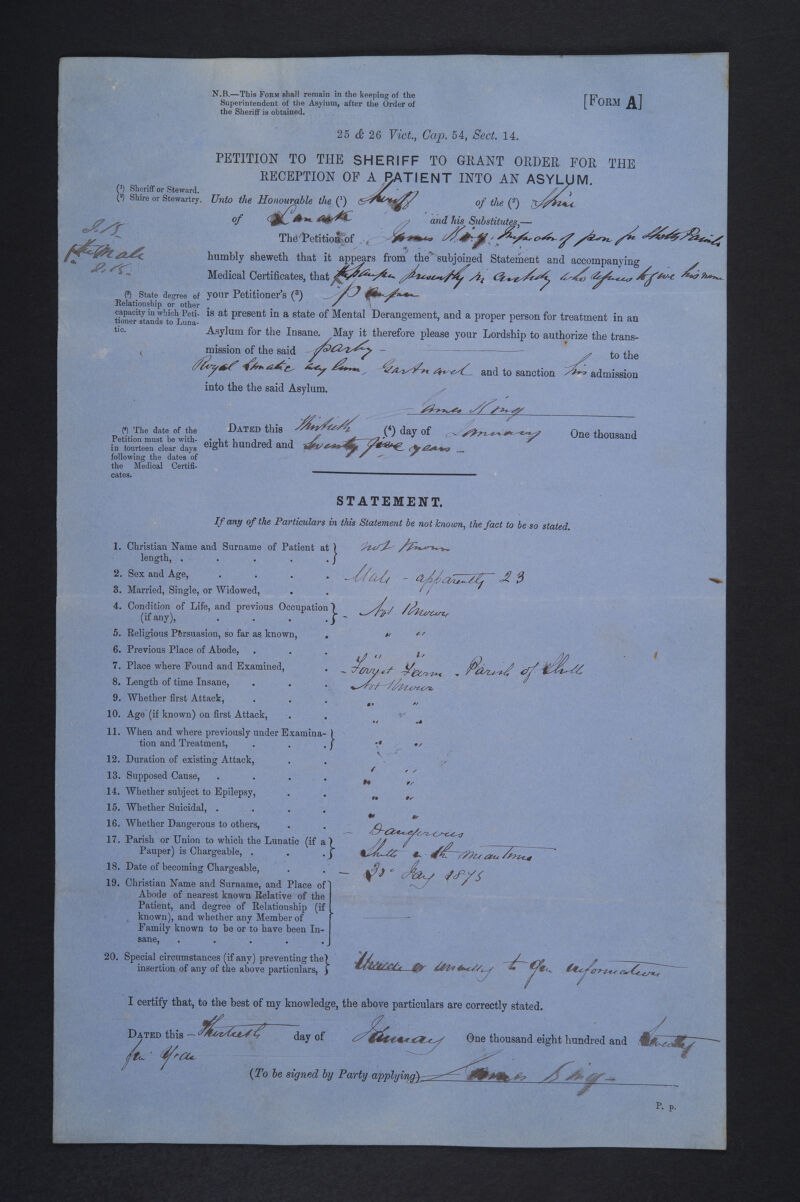 N.B.—This Form shall remain in the keeping of the
Superintendent of the Asylum, after the Order of
the Sheriff is obtained.
[Form A]
25 & 26 Vict., Cap. 54, Sect. 14.
PETITION TO THE SHERIFF TO GRANT ORDER FOR THE
RECEPTION OF A PATIENT INTO AN ASYLUM.
(¹) Sheriff or Steward.
(²) Shire or Stewartry.
Unto the Honourable the (¹) Sheriff of the (²) Shire
of Lanark and his Substitutes,—
The Petition of James King Inspector of poor for Shotts Parish
J.K.
male
J.K.
humbly sheweth that it appears from the subjoined Statement and accompanying
Medical Certificates, that the pauper presently in custody who refuses to give his name
(³) State degree of
Relationship or other
capacity in which Peti-
tioner stands to Luna-
tic.
your Petitioner's (³) pauper
is at present in a state of Mental Derangement, and a proper person for treatment in an
Asylum for the Insane. May it therefore please your Lordship to authorize the trans-
mission of the said party to the
Royal Lunatic asylum, Gartnavel and to sanction his admission
into the the said Asylum.
James King
(⁴) The date of the
Petition must be with-
in fourteen clear days
following the dates of
the Medical Certifi-
cates.
Dated this Thirtieth (⁴) day of January One thousand
eight hundred and seventy five years —
STATEMENT.
If any of the Particulars in this Statement be not known, the fact to be so stated.
1. Christian Name and Surname of Patient at
length, . . . . . not known
2. Sex and Age, . . . . Male - apparently 23
3. Married, Single, or Widowed, . .
4. Condition of Life, and previous Occupation
(if any), . . . . . Not Known
5. Religious Persuasion, so far as known, . " "
6. Previous Place of Abode, . . . " "
7. Place where Found and Examined, . Farm - Parish of Shotts
8. Length of time Insane, . . . Not Known
9. Whether first Attack, . . . " "
10. Age (if known) on first Attack, . . " "
11. When and where previously under Examina-
tion and Treatment, . . . " "
12. Duration of existing Attack, . .
13. Supposed Cause, . . . . " "
14. Whether subject to Epilepsy, . . " "
15. Whether Suicidal, . . . . " "
16. Whether Dangerous to others, . . Dangerous
17. Parish or Union to which the Lunatic (if a
Pauper) is Chargeable, . . . Shotts in the meantime
18. Date of becoming Chargeable, . . — 30 Jany 1875
19. Christian Name and Surname, and Place of
Abode of nearest known Relative of the
Patient, and degree of Relationship (if
known), and whether any Member of
Family known to be or to have been In-
sane, . . . . .
20. Special circumstances (if any) preventing the
insertion of any of the above particulars, Unable or unwilling to give information
I certify that, to the best of my knowledge, the above particulars are correctly stated.
Dated this — Thirtieth day of January One thousand eight hundred and seventy
five years
(To be signed by Party applying) James King —
P. p.